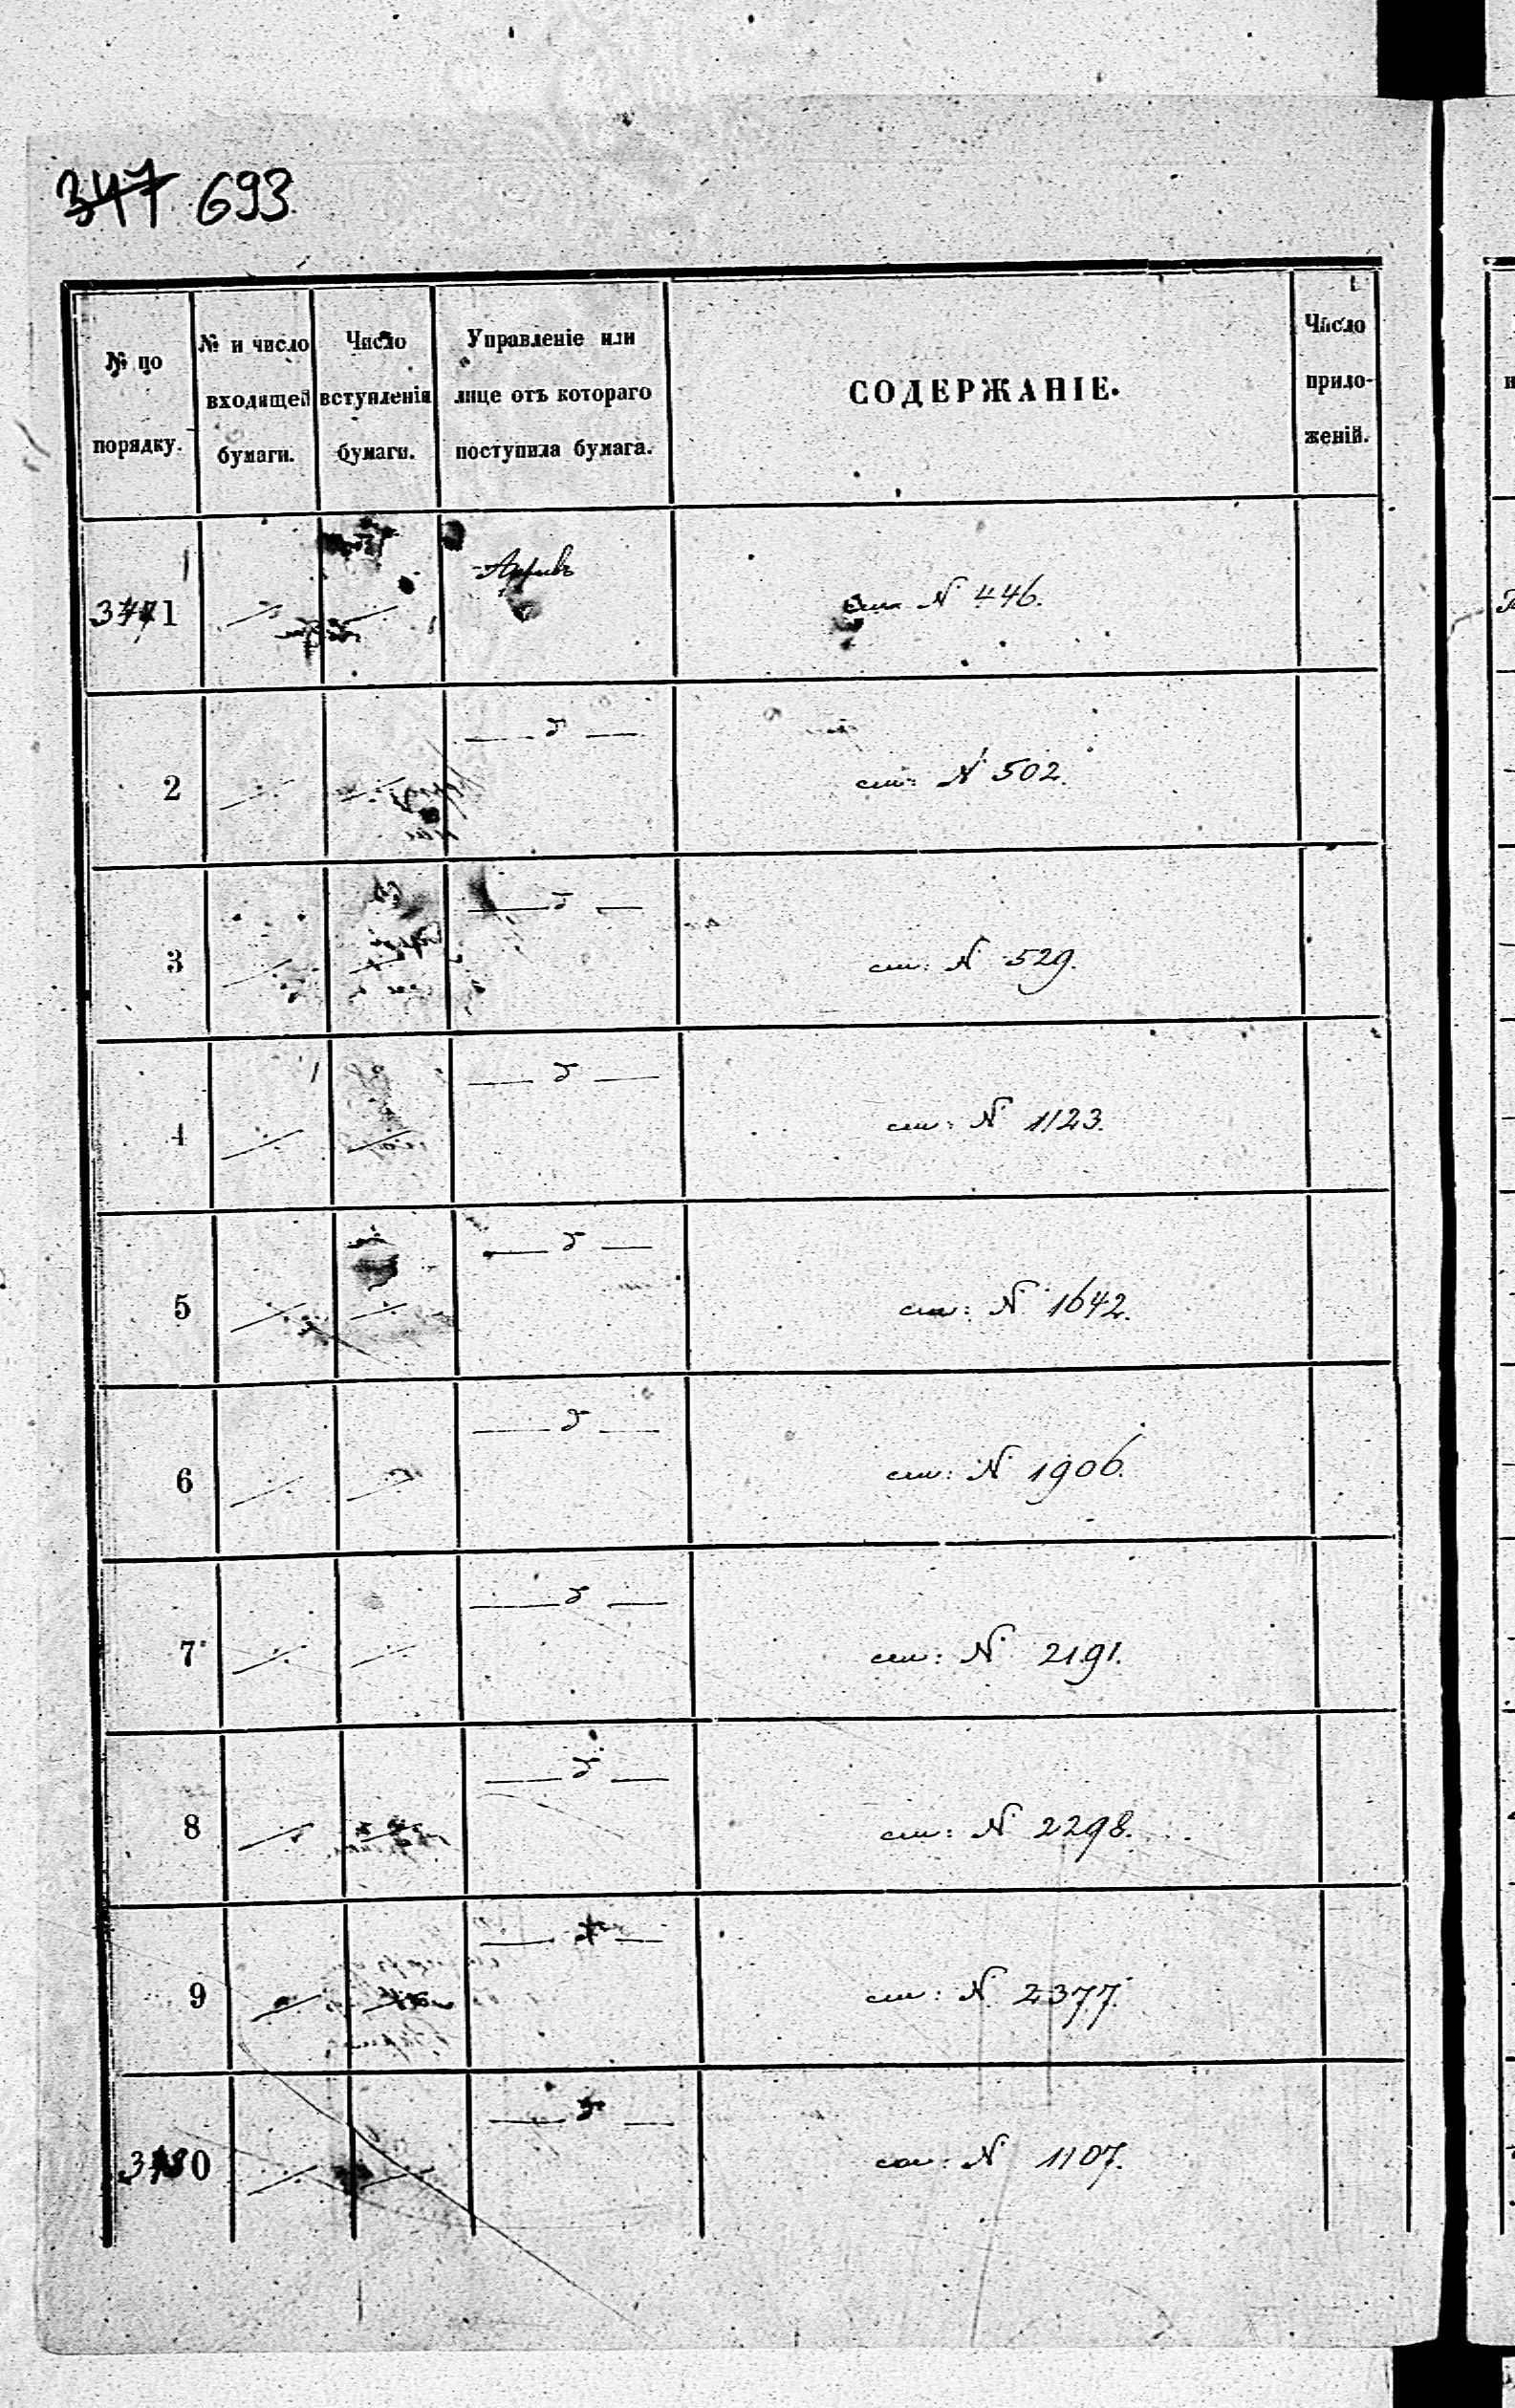 347 693.
№ по порядку.
№ и число входящей бумаги.
Число вступленія бумаги.
Управленіе или лице отъ котораго поступила бумага.
СОДЕРЖАНІЕ.
Число приложеній.
1 ·/. ·/. Архивъ см: N 446.
2 ·/. ·/. — " — см: N 502.
3 ·/. ·/. — " — см: N 529.
4 ·/. ·/. — " — см: N 1123.
5 ·/. ·/. — " — см: N 1642.
6 ·/. ·/. — " — см: N 1906.
7 ·/. ·/. — " — см: N 2191.
8 ·/. ·/. — " — см: N 2298.
9 ·/. ·/. — " — см: N 2377.
0 ·/. ·/. — " — см: N 1107.